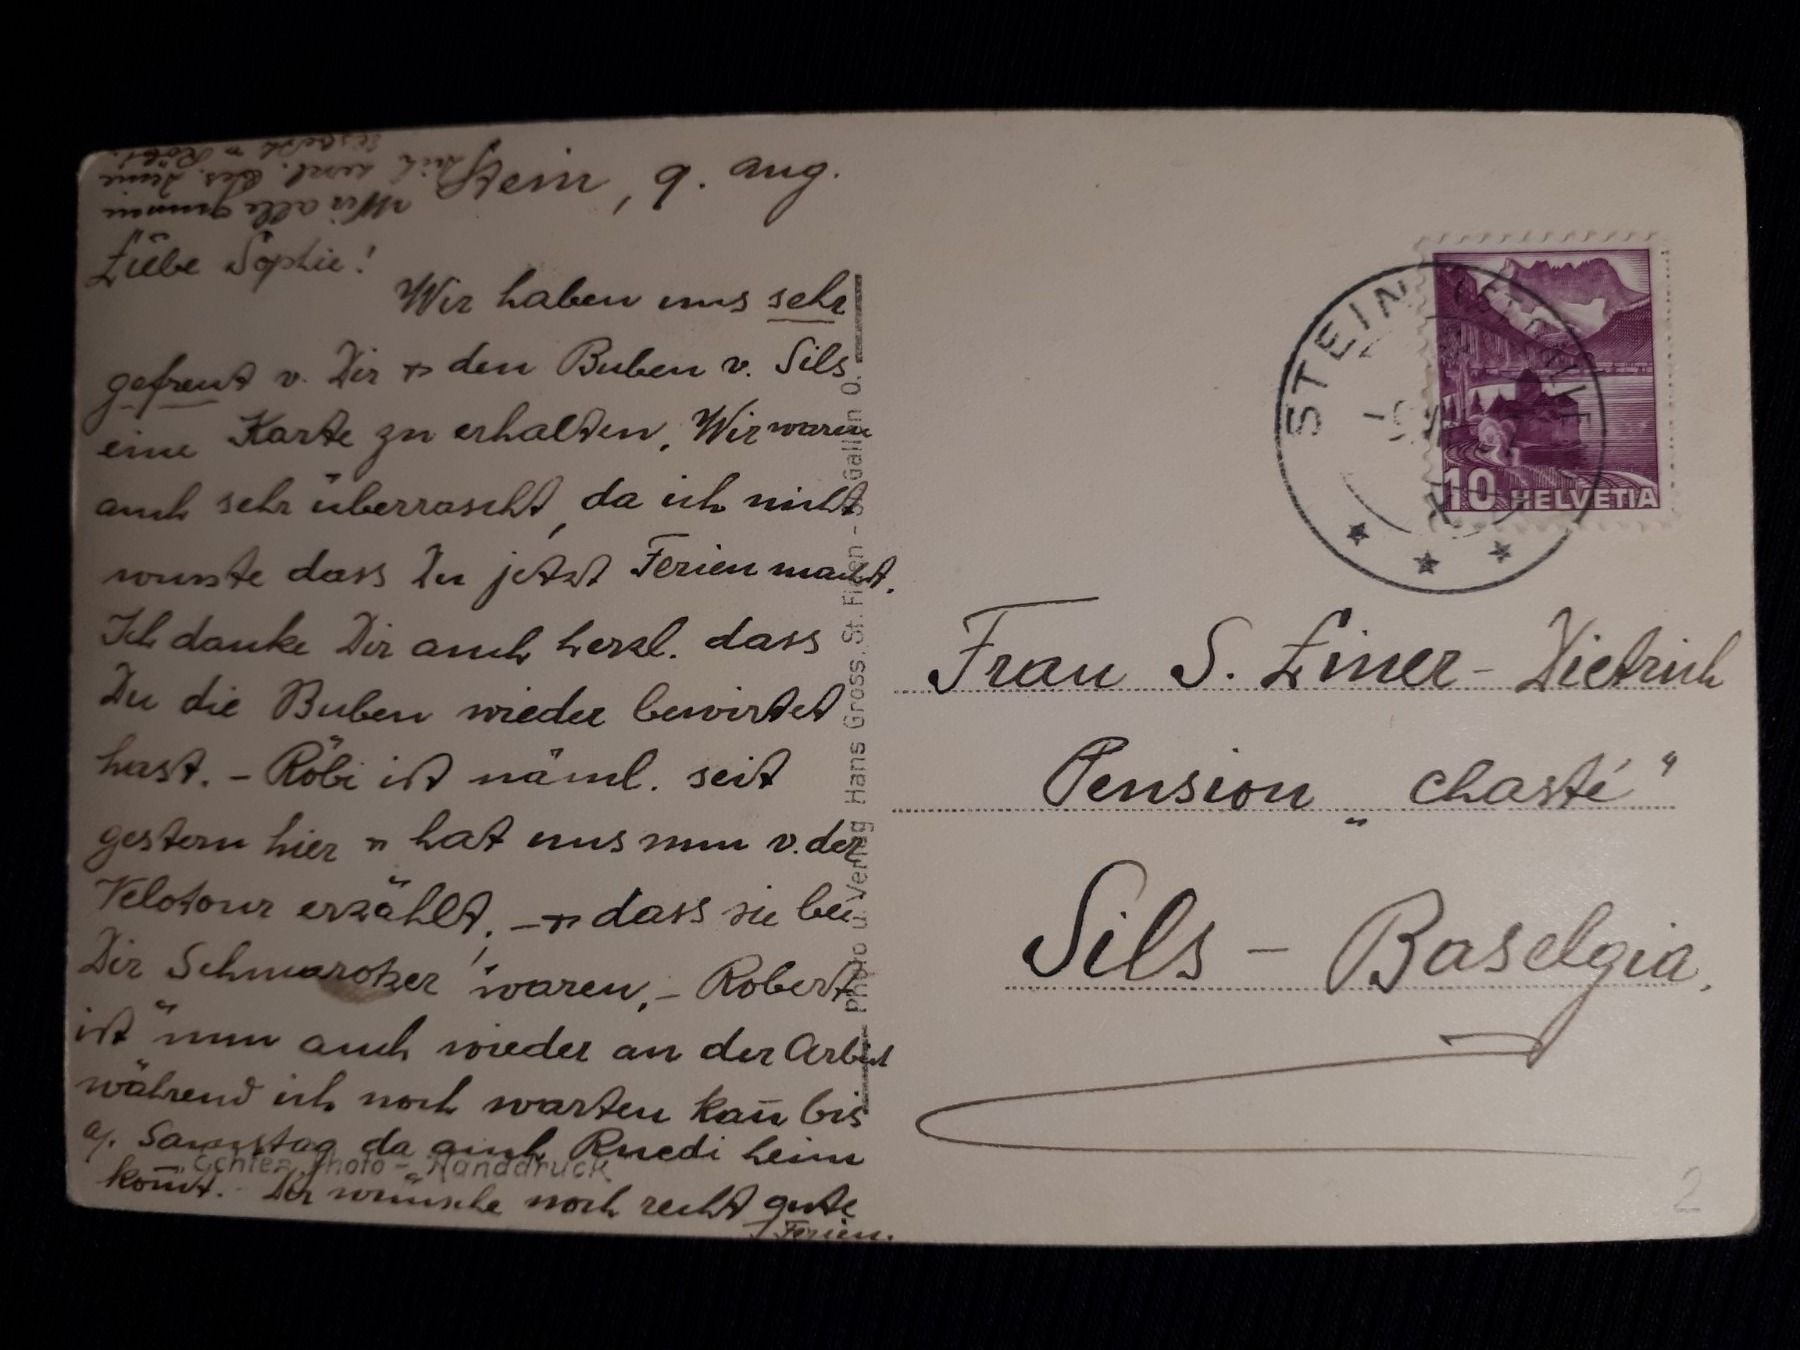 Stein, 9. Aug.
Liebe Sophie!
Wir haben uns sehr
gefreut v. Dir & den Buben v. Sils
eine Karte zu erhalten. Wir waren
auch sehr überrascht, da ich nicht
wusste dass Du jetzt Ferien machst.
Ich danke Dir auch herzl. dass
Du die Buben wieder bewirtet
hast. – Röbi ist näml. seit
gestern hier & hat uns nun v. der
Velotour erzählt, – & dass sie bei
Dir "Schmarotzer" waren, – Robert
ist nun auch wieder an der Arbeit
während ich noch warten kañ bis
Samstag da auch Ruedi heim
kom̄t. – Dir wünsche noch recht gute
Ferien.
Wir alle grüssen
Dich herzl. Bes. Deine
& Röbi.
Photo u. Verlag Hans Gross, St. Fiden - St. Gallen O.
Echter Photo-Handdruck
STEIN
10 HELVETIA
Frau S. Liner-Dietrich
Pension "Chasté"
Sils - Baselgia.
2